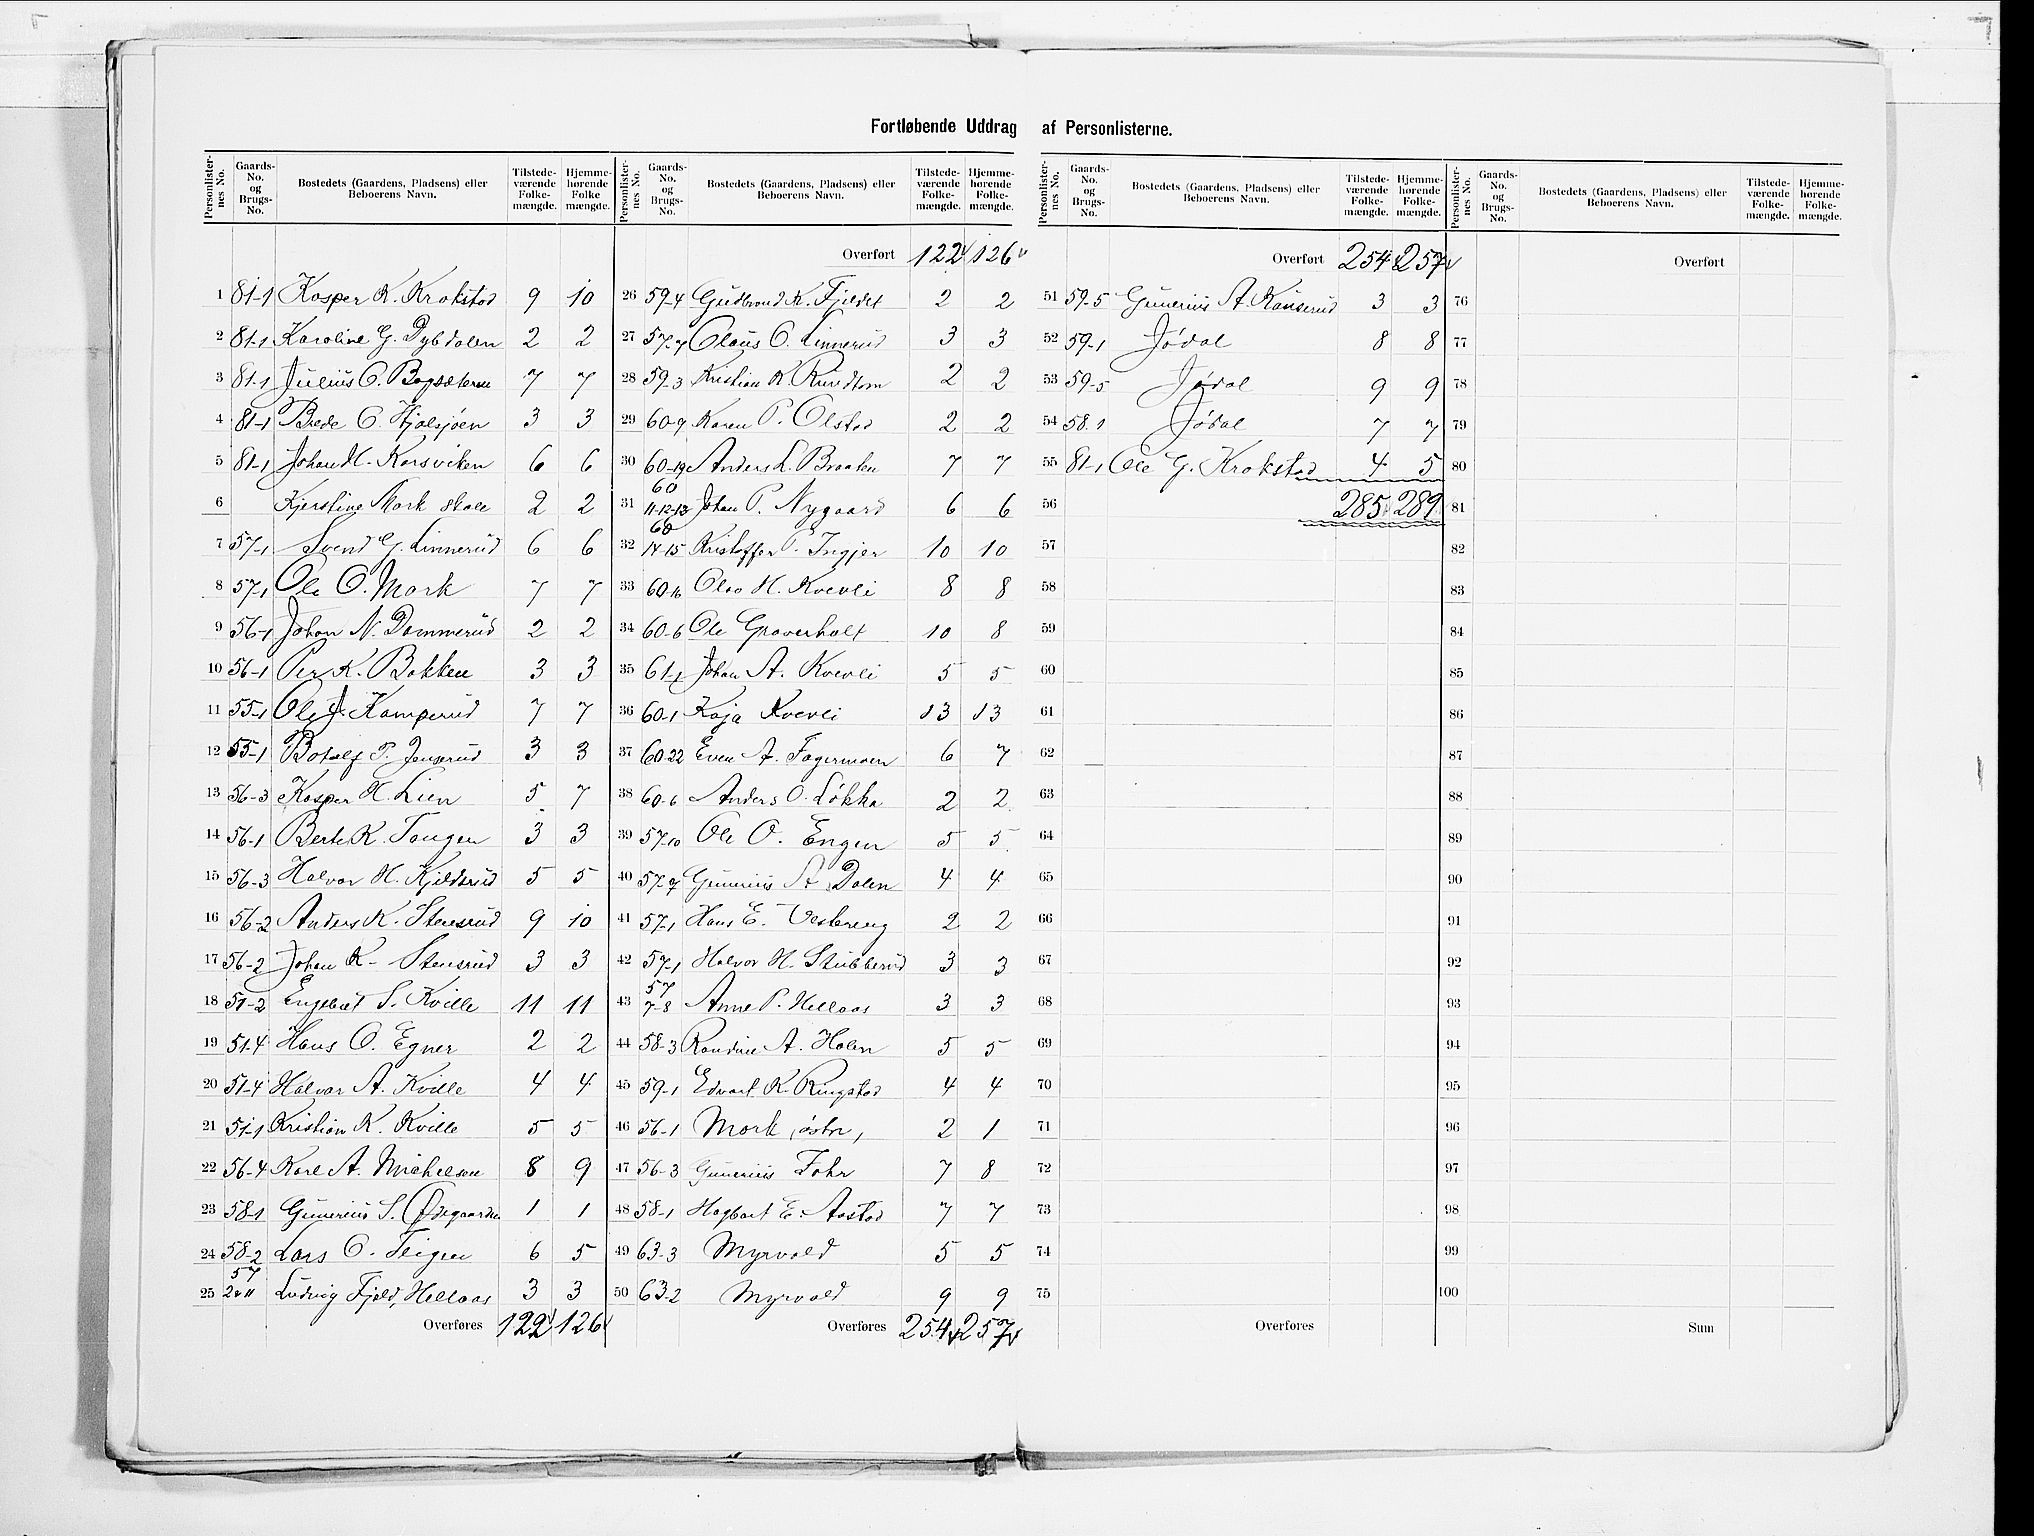 Fortløbende Uddrag af Personlisterne.
Personlister-nes No. Gaards-No. og Brugs-No. Bostedets (Gaardens, Pladsens) eller Beboerens Navn. Tilstede-værende Folke-mængde. Hjemme-hørende Folke mængde.
1 81-1 Kasper K. Krokstad 9 10
2 81-1 Karoline G. Dybdalen 2 2
3 81-1 Julius O. 7 7
4 81-1 Brede O. Hjalsjøen 3 3
5 81-1 Johan H. Korsviken 6 6
6 Kjerstine Mork 2 2
7 57-1 Svend G. Linnerud 6 6
8 57-1 Ole O. Mork 7 7
9 56-1 Johan N. Dammerud 2 2
10 56-1 Per K. Bakken 3 3
11 55-1 Ole J. Kamperud 7 7
12 55-1 Botolf P. Jenserud 3 3
13 56-3 Kasper H. Lien 5 7
14 56-1 Berte K. Tangen 3 3
15 56-3 Halvor H. Kjeldsrud 5 5
16 56-2 Anders K. Stensrud 9 10
17 56-2 Johan K- Stensrud 3 3
18 51-2 Engebret S. Kville 11 11
19 51-4 Hans O. Egner 2 2
20 51-4 Halvor A. Kville 4 4
21 51-1 Kristian K. Kville 5 5
22 56-4 Karl A. Michelsen 8 9
23 58-1 Gunerius S. Ødegaarden 1 1
24 58-2 Lars O. Teigen 6 5
25 57 Ludvig Fjeld, Hellaas 3 3
Overføres 122 126
Personlister-nes No. Gaards-No. og Brugs-No. Bostedets (Gaardens, Pladsens) eller Beboerens Navn. Tilstede-værende Folke-mængde. Hjemme-hørende Folke-mængde.
Overført 122 126
26 59-4 Gudbrand K. Fjeldet 2 2
27 57-7 Olaus O. Linnerud 3 3
28 59-3 Kristian K. 2 2
29 60-9 Karen P. Olstad 2 2
30 60-19 Anders L. Braaten 7 7
31 60 11-12-13 Johan P. Nygaard 6 6
32 60 14-15 Kristoffer P. Ingjer 10 10
33 60-16 Olav H. Kvevli 8 8
34 60-6 Ole Graverholt 10 8
35 61-1 Johan A. Kvevli 5 5
36 60-1 Kaja Kvevli 13 13
37 60-22 Even A. Fagermoen 6 7
38 60-6 Anders O. Løkka 2 2
39 57-10 Ole O. Engen 5 5
40 57-7 Gunerius A. Dalen 4 4
41 57-1 Hans E. Vestereng 2 2
42 57-1 Halvor H. Stubberud 3 3
43 57 7-8 Anne P. Hellaas 3 3
44 58-3 Randine A. Holen 5 5
45 59-1 Edvart K. Ringstad 4 4
46 56-1 Mork, østre, 2 1
47 56-3 Gunerius Fohr 7 8
48 58-1 Hagbart E. Aastad 7 7
49 63-3 Myrvold 5 5
50 63-2 Myrvold 9 9
Overføres 254 257
Personlister-nes No. Gaards-No. og Brugs-No. Bostedets (Gaardens, Pladsens) eller Beboerens Navn. Tilstede-værende Folke-mængde. Hjemme-hørende Folke-mængde.
Overført 254 257
51 59-5 Gunerius A. Kauserud 3 3
52 59-1 Jødal 8 8
53 59-5 Jødal 9 9
54 58.1 Jødal 7 7
55 81-1 Ole G. Krokstad 4 5
56 285 289
57
58
59
60
61
62
63
64
65
66
67
68
69
70
71
72
73
74
75
Overføres
Personlister-nes No. Gaards-No. og Brugs-No. Bostedets (Gaardens, Pladsens) eller Beboerens Navn. Tilstede-værende Folke-mængde. Hjemme-hørende Folke-mængde.
Overført
76
77
78
79
80
81
82
83
84
85
86
87
88
89
90
91
92
93
94
95
96
97
98
99
100
Sum